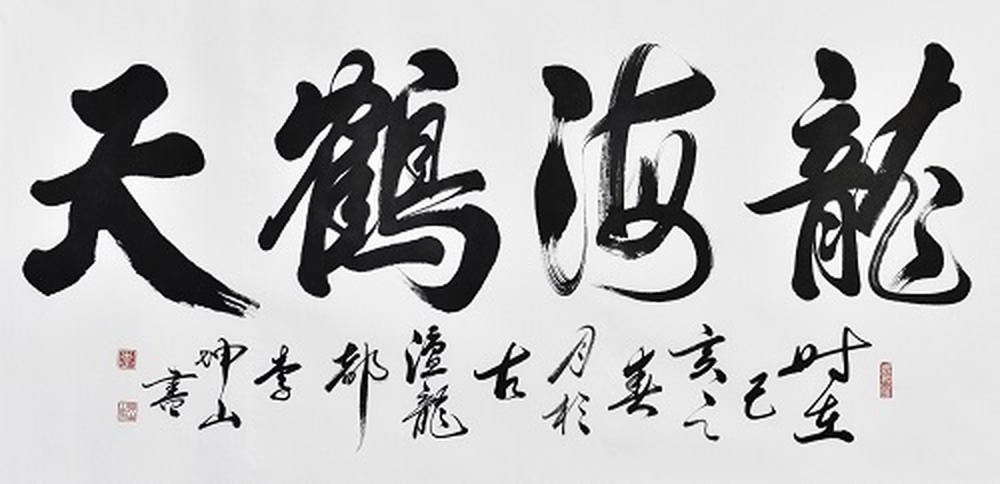 龍海鶴天
時在己亥之春月於古澶龍都李坤山書